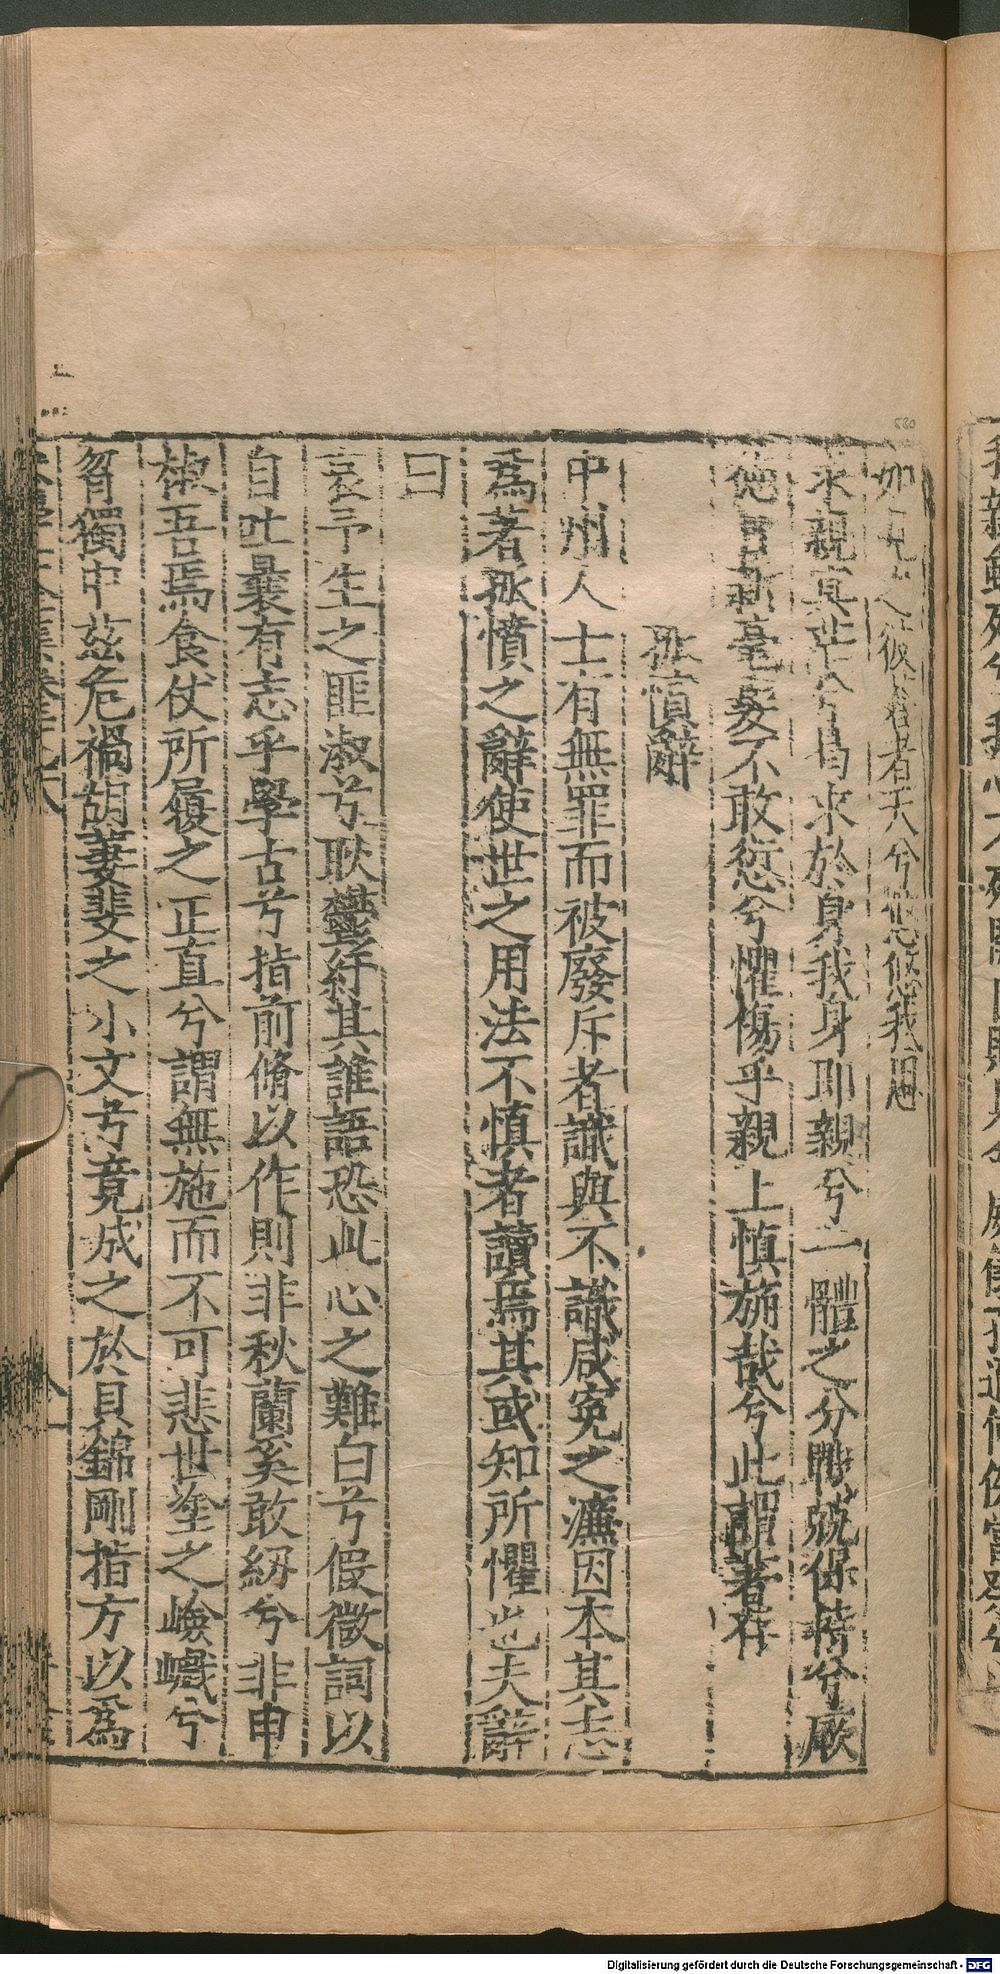 如見之彼蒼者天兮悠悠我思
求親冥茫兮曷求於身我身即親兮一體之分戰兢保持兮厥
德日新毫髮不敢愆兮懼傷乎親上慎旃哉兮此謂著存
孤憤辭
中州人士有無罪而被廢斥者識與不識咸冤之濂因本其志
為著孤憤之辭使世之用法不慎者讀焉其或知所懼也夫辭
曰
哀予生之匪淑兮耿鬱紆其誰語恐此心之難白兮假微詞以
自吐曩有志乎學古兮指前脩以作則非秋蘭奚敢紉兮非申
椒吾焉食仗所履之正直兮謂無施而不可悲世塗之嶮巇兮
胷獨中茲危禍胡萋斐之小文兮竟成之於貝錦剛指方以為
580
Digitalisierung gefördert durch die Deutsche Forschungsgemeinschaft - DFG